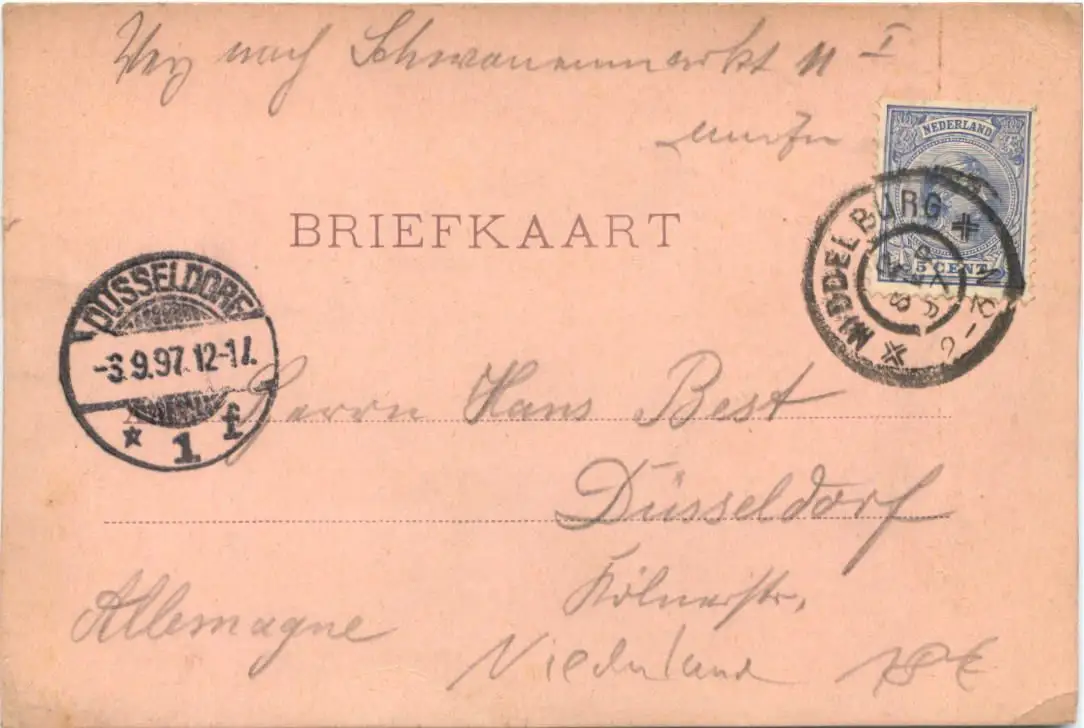 nach Schwanenmarkt 11 I
NEDERLAND
5 CENT
MIDDELBURG
BRIEFKAART
DÜSSELDORF
-3.9.97.12-1
* 1 f
Herrn Hans Best
Düsseldorf
Kölnerstr.
Allemagne